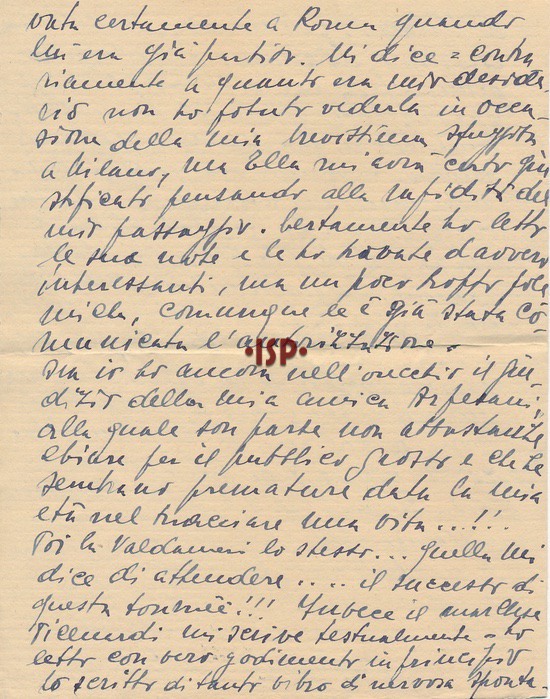 vuta certamente a Roma quando
lui era già partito. Mi dice = contra
riamente a quanto era mio deside
rio non ho potuto vederla in occa
sione della mia brevissima sfuggita
a Milano, ma Ella mi avrà certo giu
stificato pensando alla rapidità del
mio passaggio. Certamente ho letto
le sue note e le ho trovate davvero
interessanti, ma un poco troppo pole
mica, comunque le è già stata co
municata l'autorizzazione =
Ma io ho ancora nell'orecchio il giu
dizio della mia amica Arpesani,
alla quale son parse non abbastanza
chiare per il pubblico grosso e che le
sembrano premature data la mia
età nel tracciare una vita...!!.
Poi la Valdameri lo stesso... quella mi
dice di attendere .... il successo di
questa tournée!!! Invece il marchese
mi scrive testualmente = ho
letto con vero godimento in principio
lo scritto di tanto vibro di nervosa sponta-
ISP